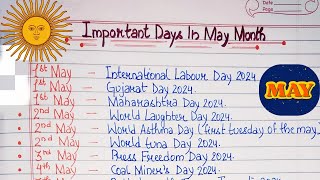 Date
Page
Important Days In May Month
1st May — International Labour Day 2024.
1st May — Gujarat Day 2024.
1st May — Maharashtra Day 2024.
2nd May — World Laughter Day 2024.
2nd May — World Asthma Day (first tuesday of the may)
2nd May — World tuna Day 2024.
3rd May — Press Freedom Day 2024.
4th May — Coal Miner's Day 2024.
MAY